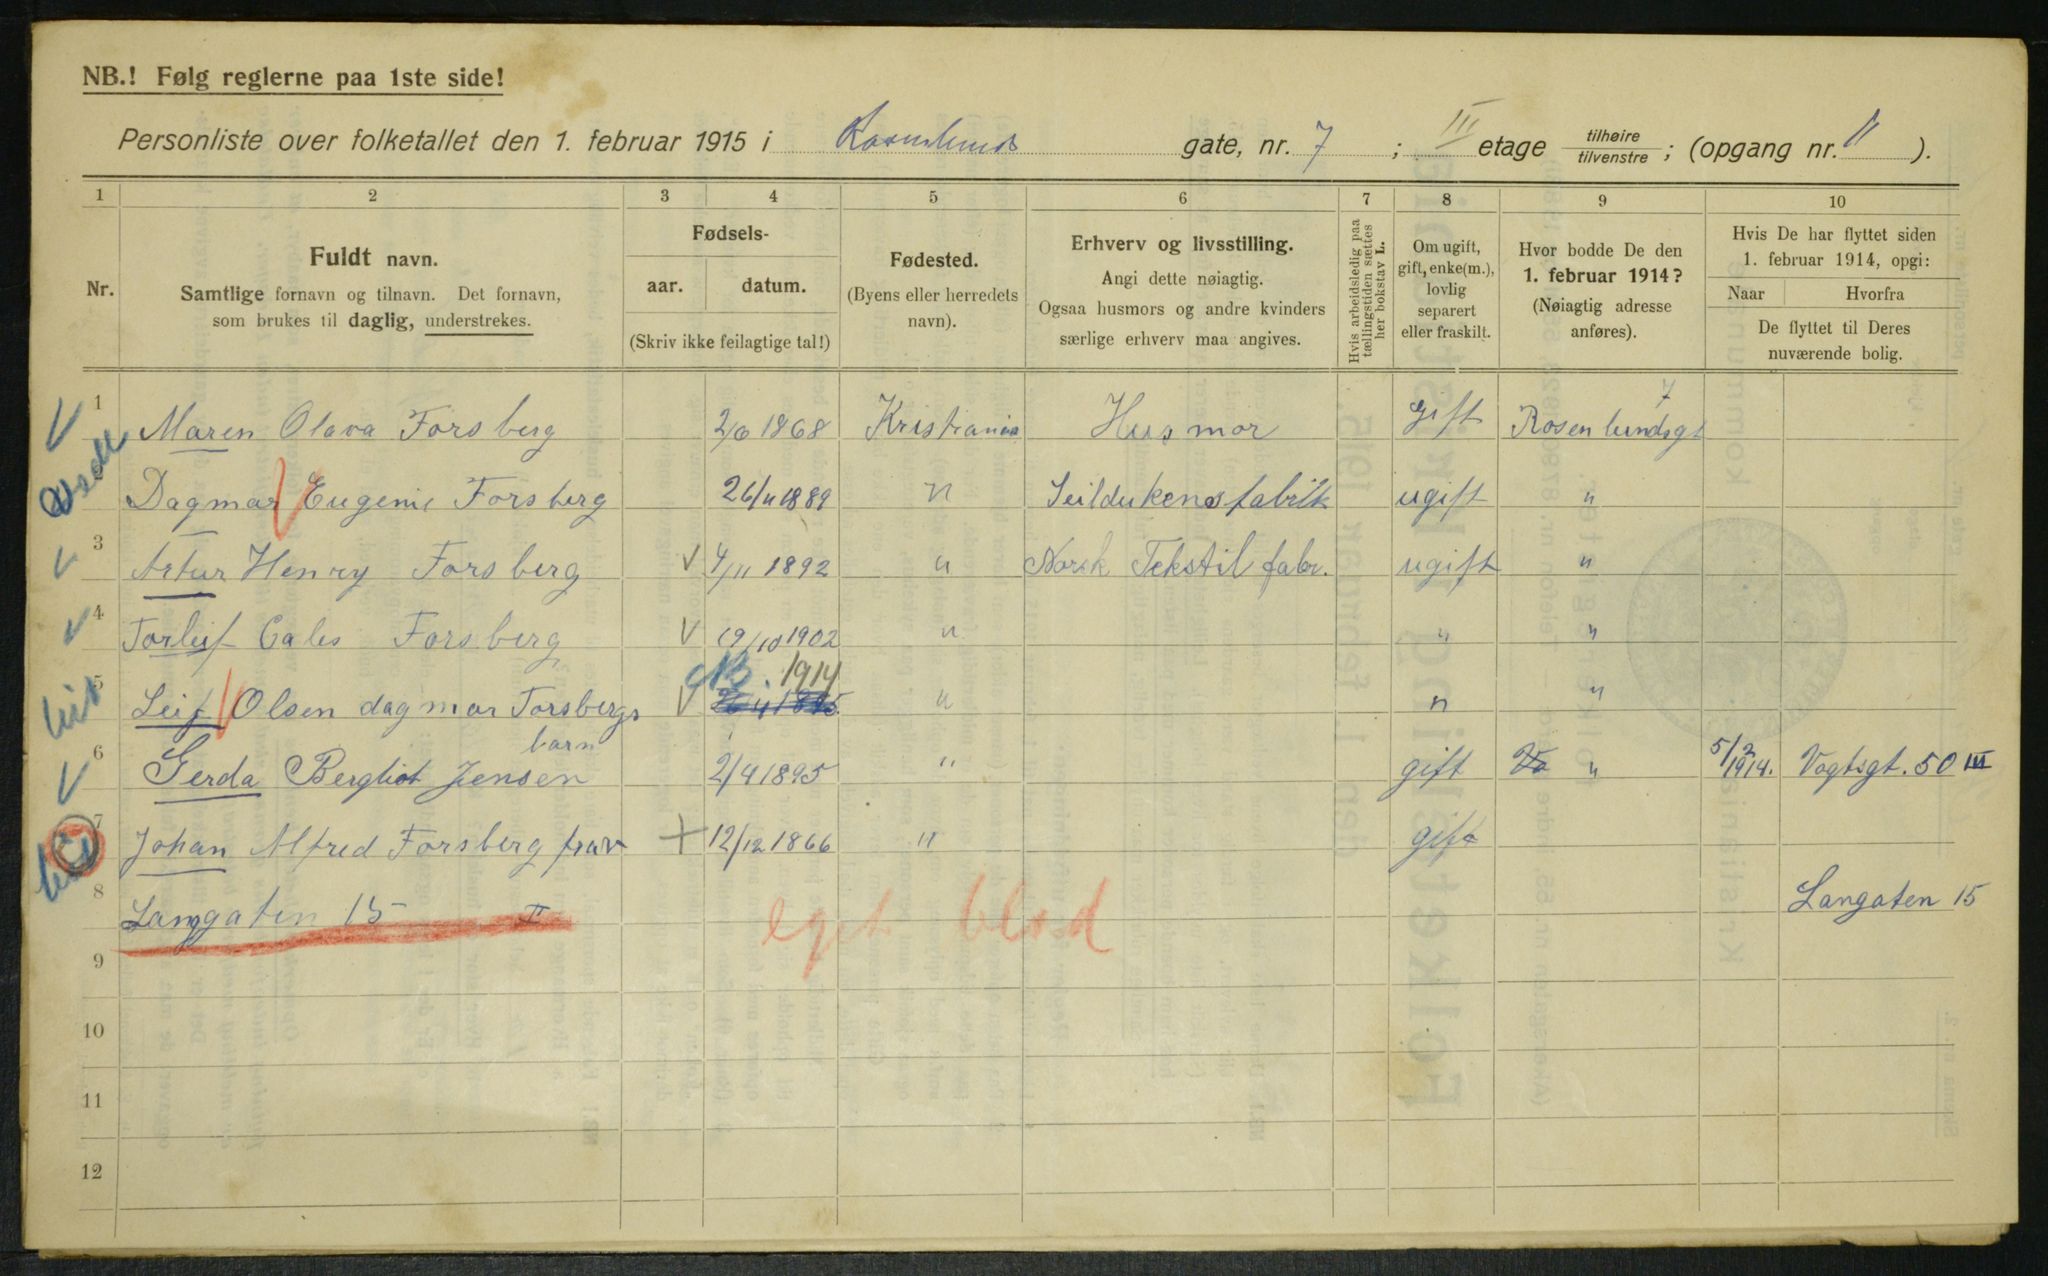 NB.! Følg reglerne paa 1ste side!
Personliste over folketallet den 1. februar 1915 i Rosenlunds gate, nr. 7 ; III etage tilhøire tilvenstre ; (opgang nr. II ).
1 2 3 4 5 6 7 8 9 10
Nr.
Fuldt navn.
Samtlige fornavn og tilnavn. Det fornavn,
som brukes til daglig, understrekes.
Fødsels-
aar. datum.
(Skriv ikke feilagtige tal!)
Fødested.
(Byens eller herredets
navn).
Erhverv og livsstilling.
Angi dette nøiagtig.
Ogsaa husmors og andre kvinders
særlige erhverv maa angives.
Hvis arbeidsledig paa
tællingstiden sættes
her bokstav L.
Om ugift,
gift, enke(m.),
lovlig
separert
eller fraskilt.
Hvor bodde De den
1. februar 1914?
(Nøiagtig adresse
anføres).
Hvis De har flyttet siden
1. februar 1914, opgi:
Naar Hvorfra
De flyttet til Deres
nuværende bolig.
1 Maren Olava Forsberg 2/6 1868 Kristiania Husmor gift Rosenlundsgt 7
Dagmar Eugenie Forsberg 26/11 1889 " Seildukens fabrik ugift "
3 Artur Henry Forsberg 4/11 1892 " Norsk Tekstil fabr. ugift "
4 Torleif Cales Forsberg 19/10 1902 " " "
5 Leif Olsen dagmar Forsbergs 1914 " " "
barn
6 Gerda Bergliot Jensen 2/4 1895 " gift " 5/2 1914. Vogtsgt. 50 III
7 Johan Alfred Forsberg frav 12/12 1866 " gift
8 Langgaten 15 II Langaten 15
eget blad
9
10
11
12